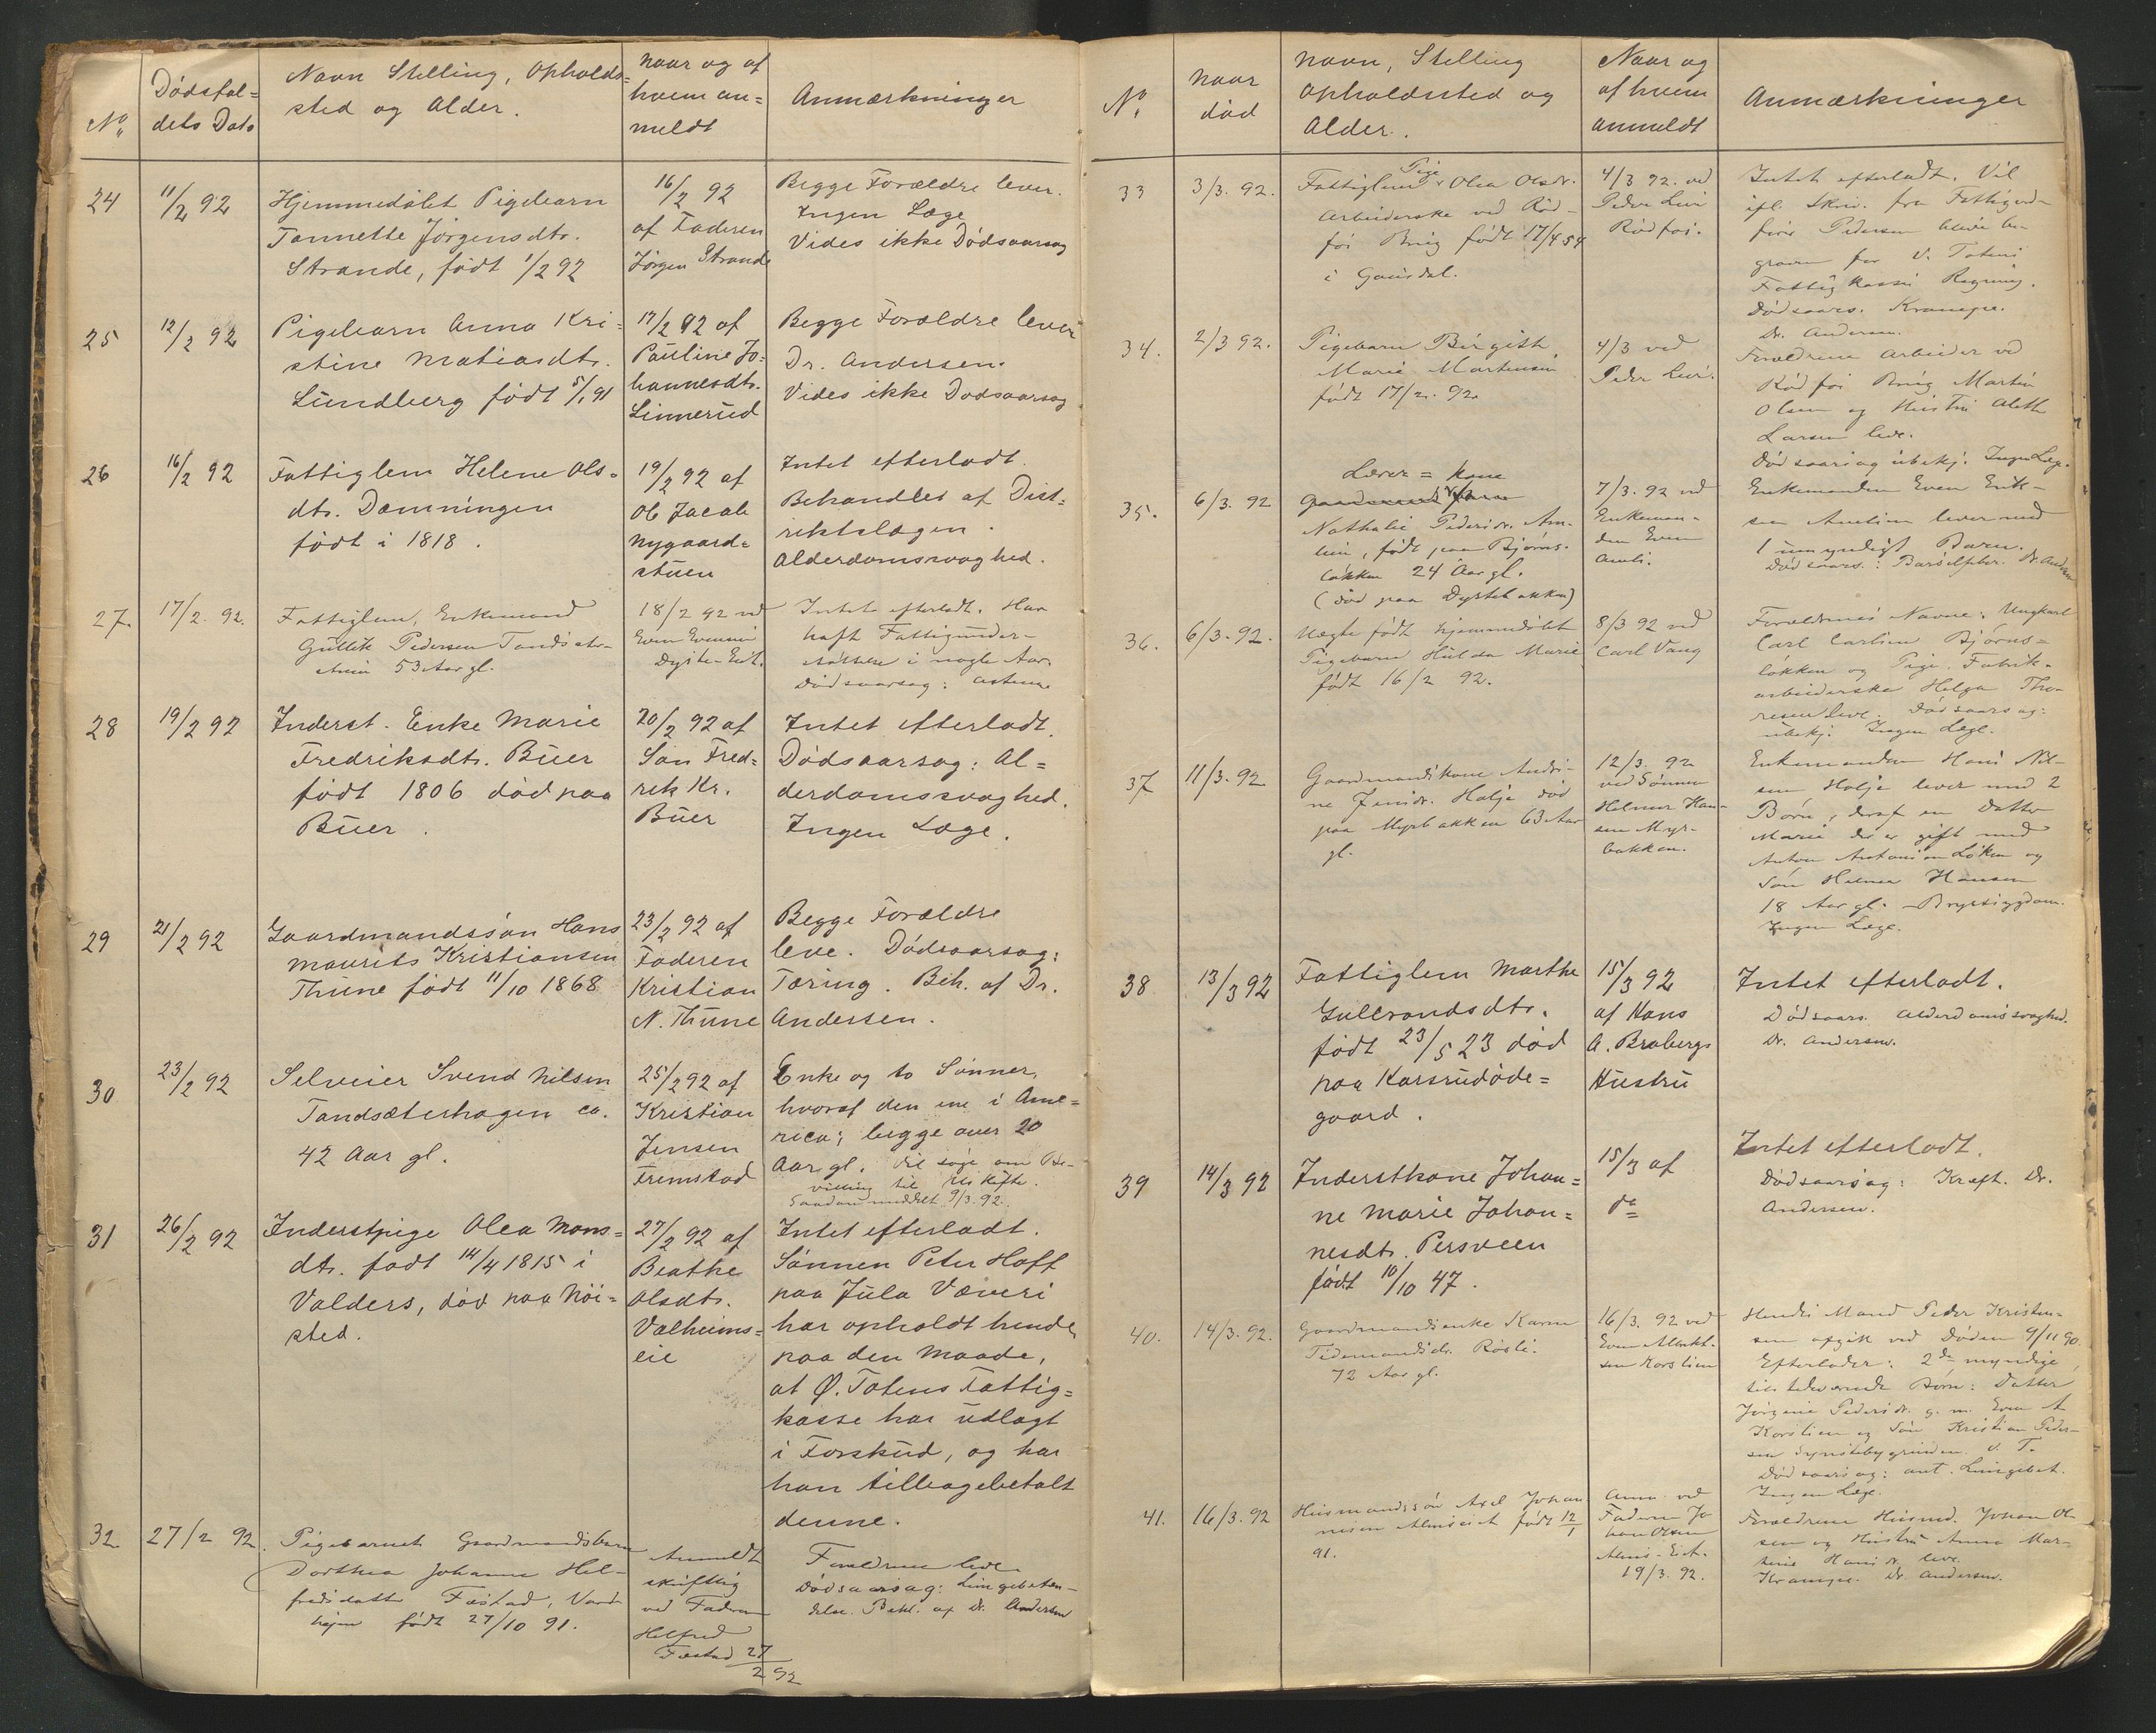 No
Dødsfal=
dets Dato
Navn Stilling, Opholds=
sted og Alder.
Naar og af
hvem an=
meldt
Anmærkninger
24
11/2 92
Hjemmedøbt Pigebarn
Tonnette Jörgensdtr.
Strande, født 1/2 92
16/2 92
af Faderen
Jörgen Strande
Begge Forældre lever.
Ingen Læge
Vides ikke Dødsaarsag
25
12/2 92
Pigebarn Anna Kri=
stine Matiasdtr.
Lundberg født 5/1 91
17/2 92 af
Pauline Jo=
hannesdtr.
Linnerud
Begge Forældre lever
Dr. Andersen.
Vides ikke Dødsaarsag
26
16/2 92
Fattiglem Helene Ols=
dtr. Dæmningen
født i 1818.
19/2 92 af
Ole Jacob
Nygaard=
stuen
Intet efterladt.
Behandlet af Dist=
riktslægen.
Alderdomssvaghed.
27
17/2. 92.
Fattiglem, Enkemand
Gullik Pedersen Tandsæter-
53 Aar gl.
18/2 92 ved
Even Evensen
Dyste-Eiet.
Intet efterladt. Har
haft Fattigunder-
støttelse i nogle Aar.
Dødsaarsag: Astma
28
19/2 92
Inderst. Enke Marie
Fredriksdtr. Buer
født 1806 død paa
Buer.
20/2 92 af
Søn Fred=
rik Kr.
Buer
Intet efterladt.
Dødsaarsag: Al=
derdomssvaghed.
Ingen Læge.
29
21/2 92
Gaardmandssøn Hans
Maurits Kristiansen
Thune født 11/10 1868
23/2 92 af
Faderen
Kristian
N. Thune
Begge Forældre
leve. Dødsaarsag:
Tæring. Beh. af Dr.
Andersen.
30
23/2 92
Selveier Svend Nilsen
Tandsæterhagen ca.
42 Aar gl.
25/2 92 af
Kristian
Jensen
Fremstad
Enke og to Sønner,
hvoraf den ene i Ame=
rica; begge over 20
Aar gl. Vil søge om Be-
villing til Uskifte.
Saadan meddelt 9/3. 92.
31
26/2 92
Inderstpige Olea Mons=
dtr. født 14/4 1815 i
Valders, død paa Nöi=
sted.
27/2 92 af
Beathe
Olsdtr.
Valheims=
eie
Intet efterladt.
Sønnen Peter Hoff
paa Jula Væveri
har opholdt hende
paa den Maade,
at Ø. Totens Fattig=
kasse har udlagt
i Forskud, og har
han tilbagebetalt
denne.
32
27/2 92.
Pigebarnet Gaardmandsbarn
Dorthea Johanne Hel-
fredsdatter Fæstad,
født 27/10 91.
Anmeldt
skriftlig
ved Faderen
Helfred
Fæstad 27/2 92
Forældrene leve
Dødsaarsag: Lungebetæn-
delse. Behl. af Dr. Andersen
No
Naar
død
Navn, Stilling
Opholdssted og
Alder.
Naar og
af hvem
Anmeldt
Anmærkninger
33
3/3. 92.
Pige
Fattiglem Olea Olsdr.
Arbeiderske ved Rød-
fos Brug født 17/4 54
i Gausdal.
4/3 92. ved
Peder Lier
Rødfos.
Intet efterladt. Vil
ifl. Skriv. fra Fattigud-
Pedersen blive be-
graven for V. Totens
Fattigkasses Regning.
Dødsaars. Krampe.
Dr. Andersen.
34.
2/3 92.
Pigebarn Birgith
Marie Martinsen
født 17/2. 92
4/3 ved
Peder Lier.
Forældrene Arbeider ved
Rødfos Brug Martin
Olsen og Hustru Aleth
Larsen leve.
Dødsaarsag ubekj. Ingen Læge.
35.
6/3. 92
Lærer = kone
Nathalie Pedersdr. Am-
lien, født paa Bjørns-
løkken 24 Aar gl.
(død paa Dystebakken)
7/3. 92 ved
Enkeman-
den Even
Amli.
Enkemanden Even Erik-
sen Amlien lever med
1 umyndigt Barn.
Dødsaars.: Barselfeber. Dr. Andersen
36.
6/3. 92.
Uægte født hjemmedøbt
Pigebarn Hulda Marie
født 16/2 92.
8/3 92 ved
Carl Vang
Forældrenes Navne: Ungkarl
Carl Carlsen Bjørns=
løkken og Pige. Fabrik-
arbeiderske Helga Tho-
resen leve. Dødsaarsag:
ubekj. Ingen Læge.
37
11/3. 92
Gaardmandskone Andri-
ne Jensdr. Holje død
paa Myrbakken 63 Aar
gl.
12/3. 92
ved Sønnen
Helmer Han-
sen Myr-
bakken.
Enkemanden Hans Nil-
sen Holje lever med 2
Børn, deraf en Datter
Marie der er gift med
Anton Antonisen Løken og
Søn Helmer Hansen
18 Aar gl. Brystsygdom.
Ingen Læge.
38
13/3 92
Fattiglem Marthe
Gulbrandsdtr.
født 23/5 23 død
paa Karsrudøde=
gaard.
15/3 92
af Hans
A. Brobergs
Hustru
Intet efterladt.
Dødsaars. Alderdomssvaghed.
Dr. Andersen.
39
14/3 92
Inderstkone Johan=
ne Marie Johan=
nesdtr. Persveen
født 10/10 47.
15/3 af
do
Intet efterladt.
Dødsaarsag: Kræft. Dr.
Andersen.
40.
14/3. 92.
Gaardmandsenke Karen
Tidemandsdr. Røsli.
72 Aar gl.
16/3. 92 ved
Even
sen Korslien
Hendes Mand Peder Kristen-
sen afgik ved Døden 9/11 90.
Efterlader: 2de myndige,
tilstedeværende Børn: Datter
Jørgine Pedersdr. g. m. Even A
Korslien og Søn Kristian Peder-
sen V. T.
Dødsaarsag: ant. Lungebet.
Ingen Læge.
41.
16/3. 92
Husmandssøn Axel Johan
nesen Almseiet født 12/1
91.
Anm. ved
Faderen Jo
han Olsen
Alms-Eiet.
19/3. 92.
Forældrene Husmd. Johan Ol-
sen og Hustru Anna Mar-
thine Hansdr. leve.
Krampe. Dr. Andersen.